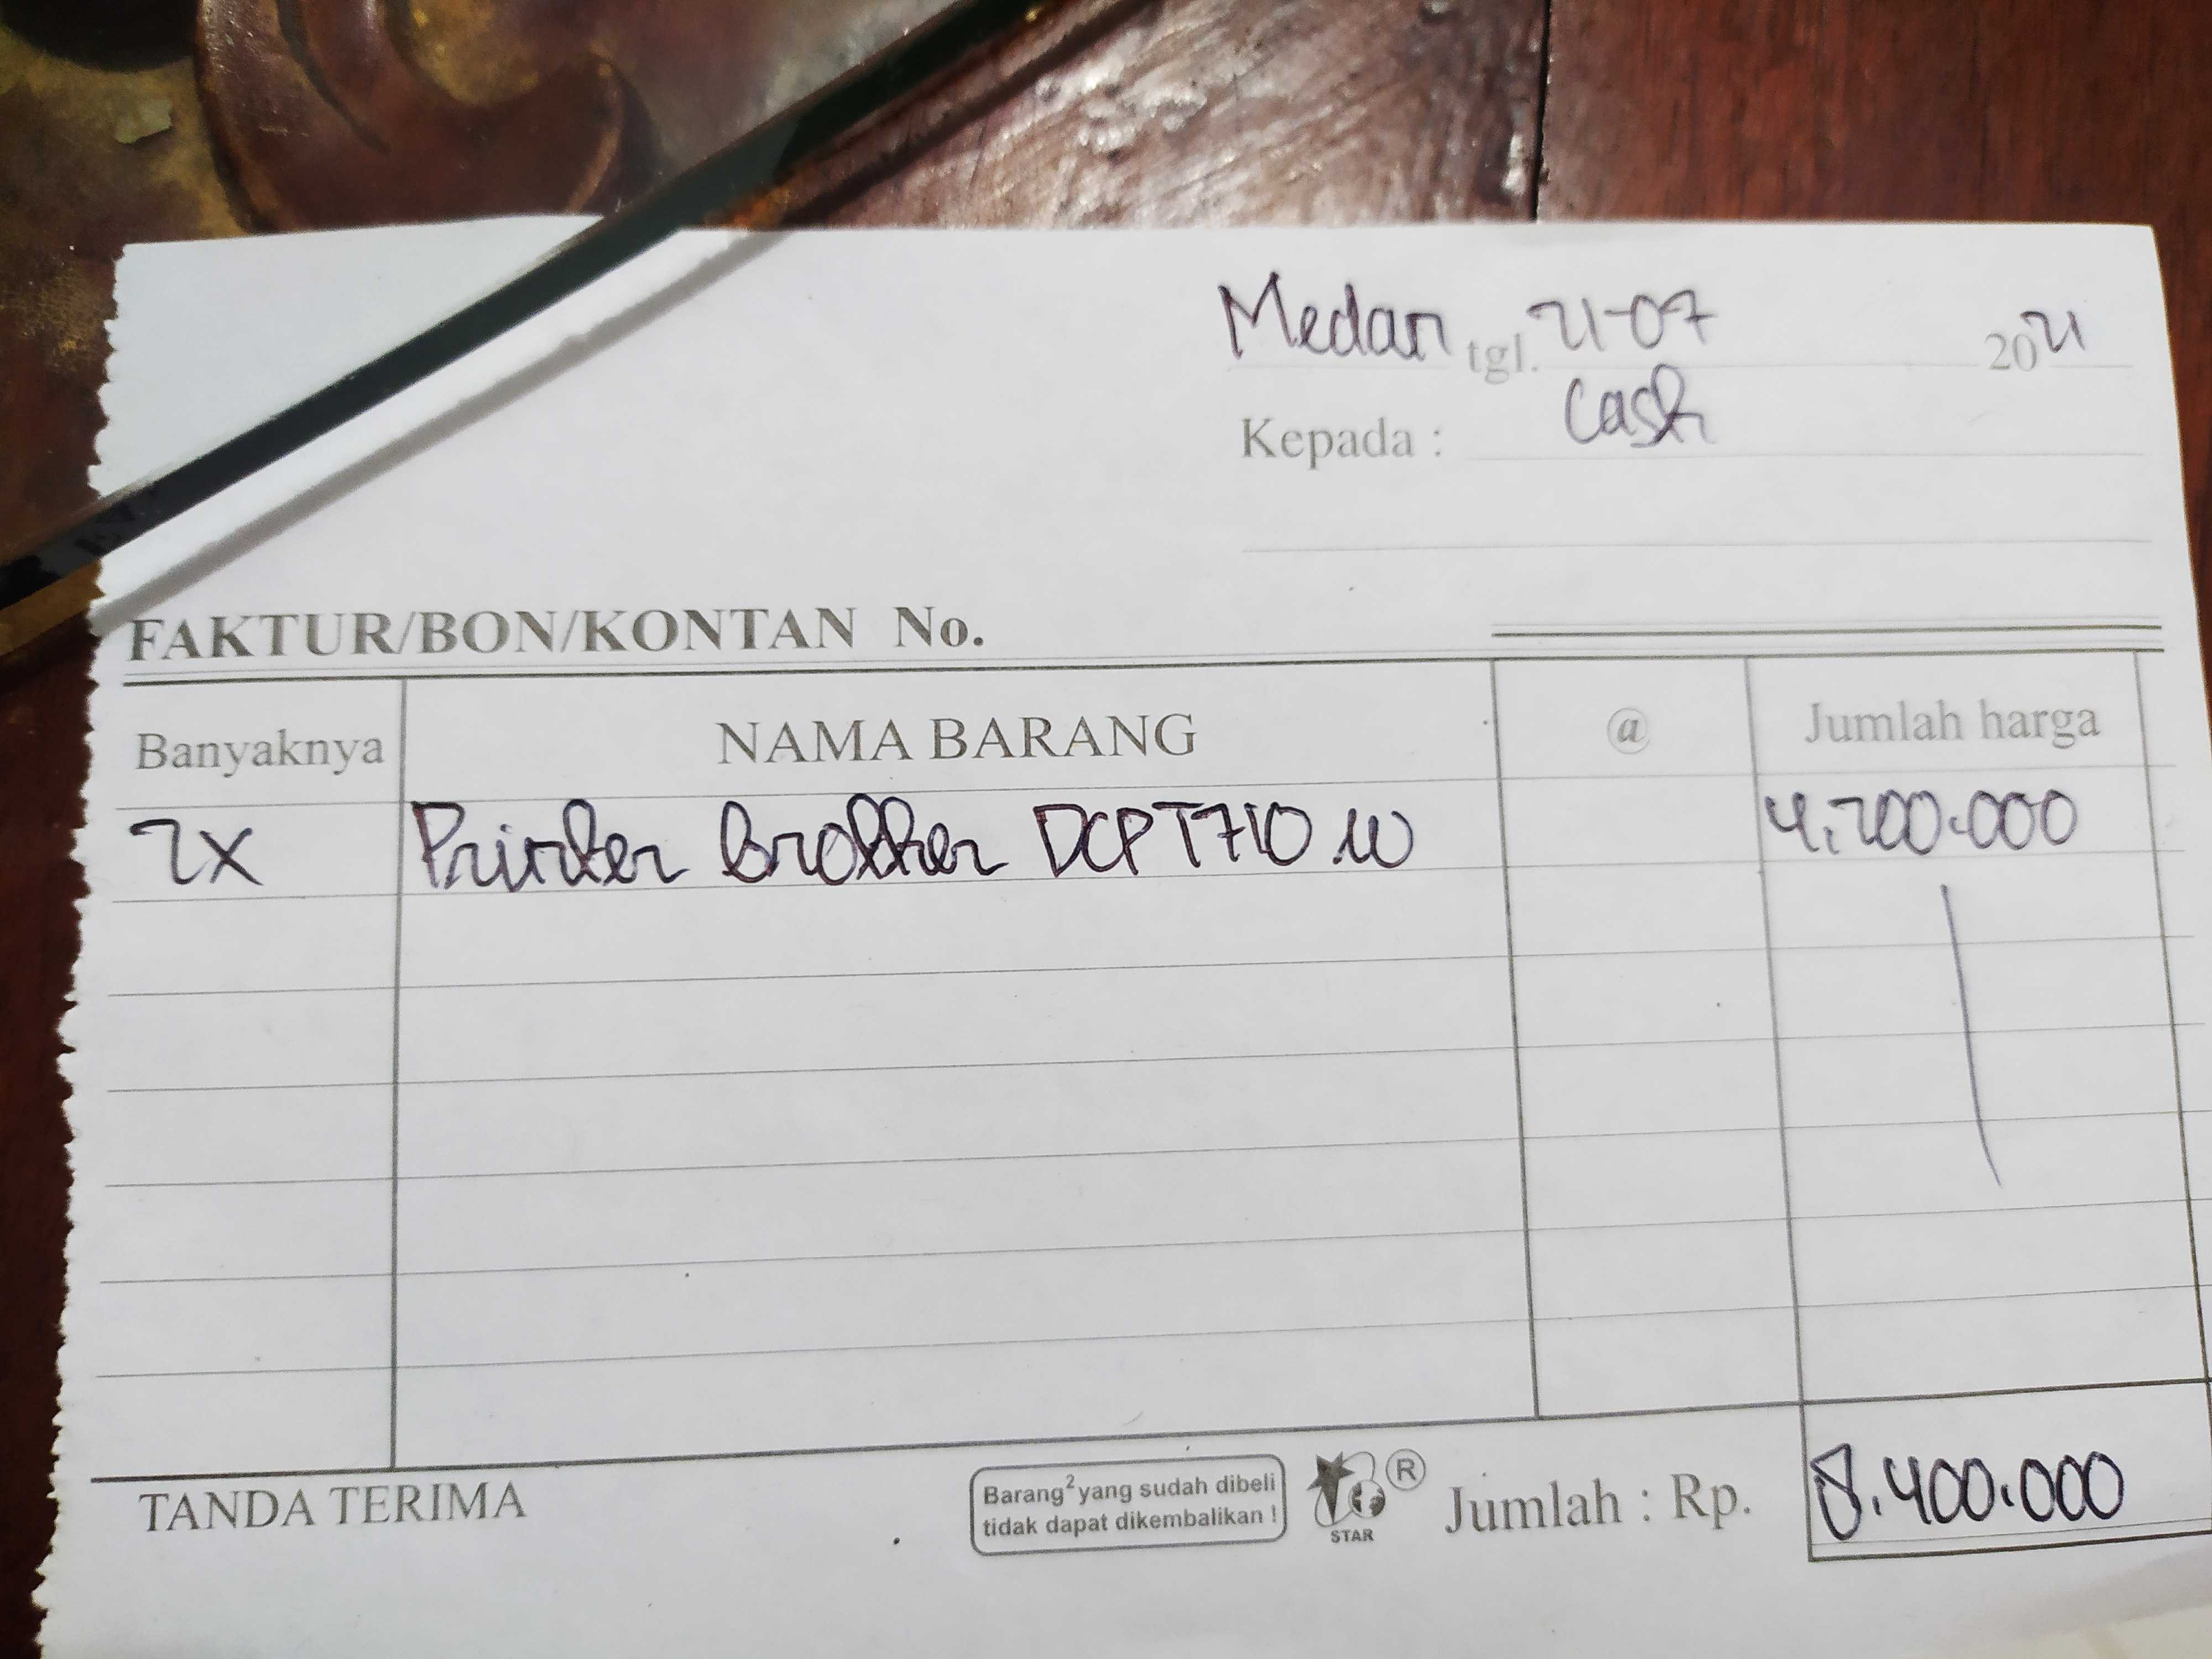 Medan tgl. 21-07 2021
Kepada : Cash
FAKTUR/BON/KONTAN No.
Banyaknya NAMA BARANG @ Jumlah harga
2X Printer Brother DCPT710 W 4.200.000
TANDA TERIMA
Barang² yang sudah dibeli
tidak dapat dikembalikan !
STAR
®
Jumlah : Rp. 8.400.000